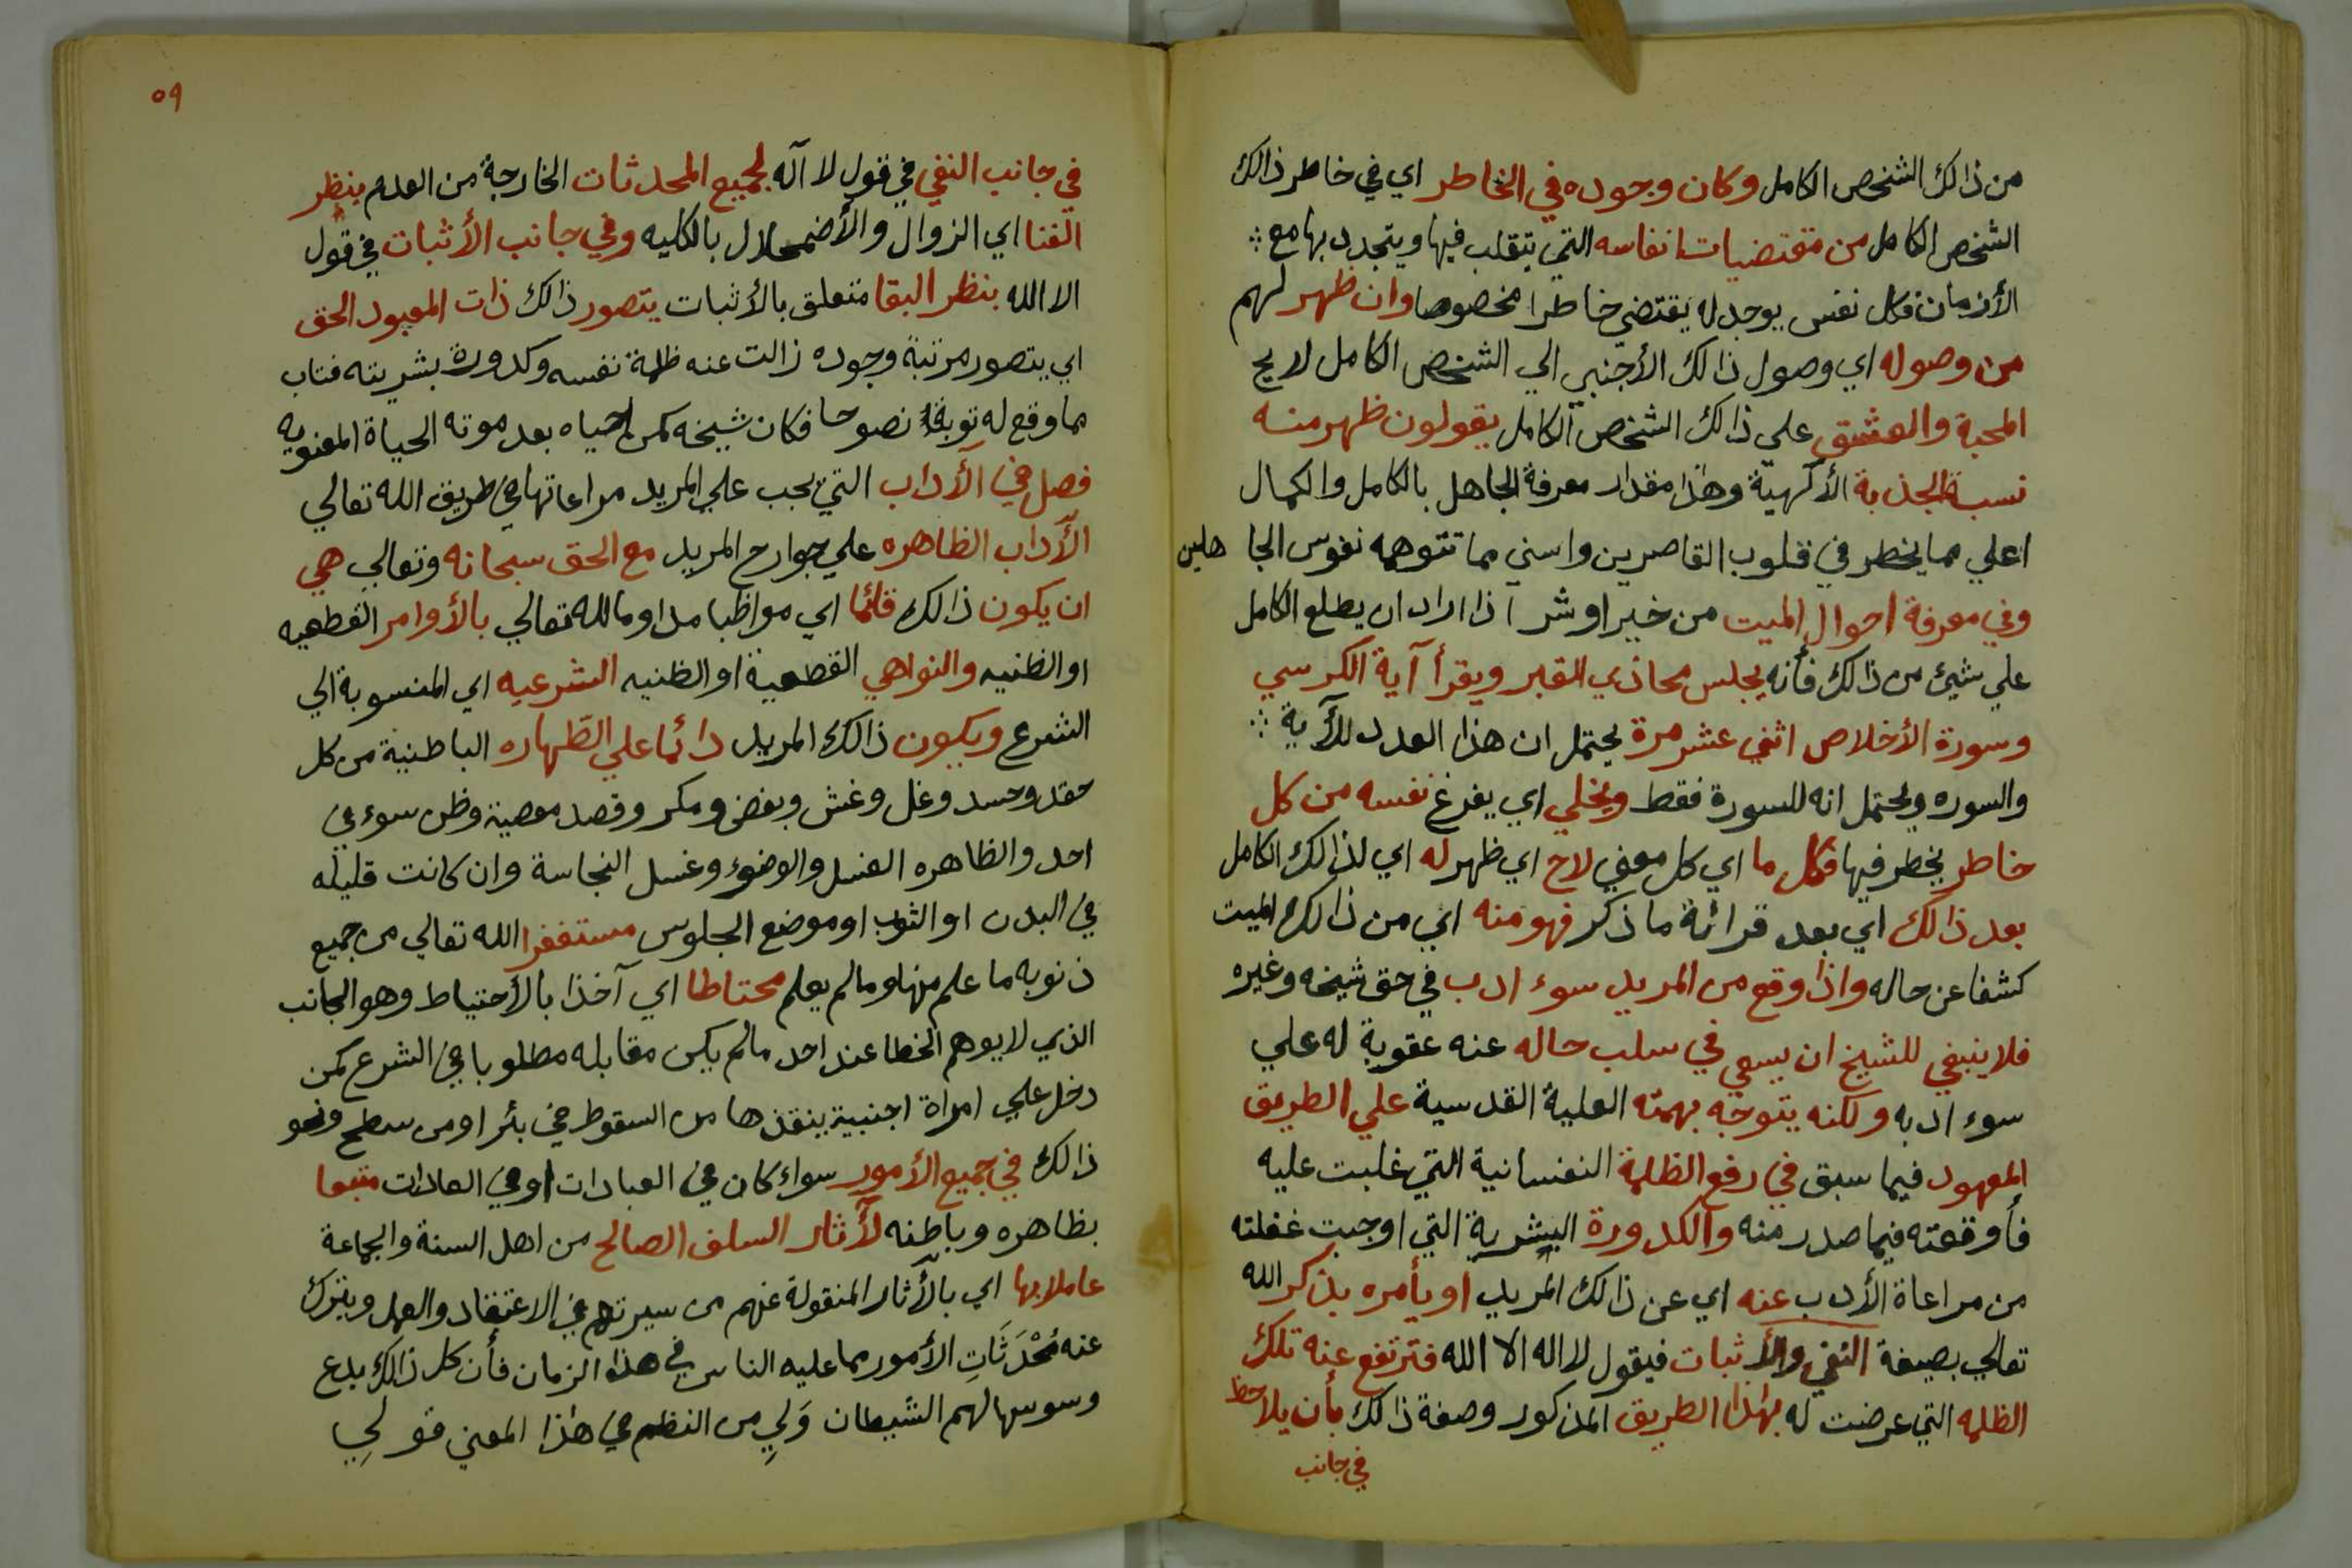 من ذالك الشخص الكامل وكان وجوده في الخاطر اي في خاطر ذالك
الشخص الكامل من مقتضيات انفاسه التي يتقلب فيها ويتجدد بها مع
الأزمان فكل نفس يوجد له يقتضي خاطرا مخصوصا وان ظهر لهم
من وصوله اي وصول ذالك الأجنبي الي الشخص الكامل لاريح
المحبة والعشق علي ذالك الشخص الكامل يقولون ظهر منه
نسبة الجذبة الألهية وهذا مقدار معرفة الجاهل بالكامل والكمال
اعلي مما يخطر في قلوب القاصرين واسني مما تتوهمه نفوس الجا هلين
وفي معرفة احوال الميت من خير او شر اذا اراد ان يطلع الكامل
علي شيئ من ذالك فأنه يجلس محاذي القبر ويقرأ آية الكرسي
وسورة الأخلاص اثني عشر مرة يحتمل ان هذا العدد للآية
والسوره ويحتمل انه للسورة فقط ويخلي اي يفرغ نفسه من كل
خاطر يخطر فيها فكل ما اي كل معني لاح اي ظهر له اي لذالك الكامل
بعد ذالك اي بعد قرائة ما ذكر فهو منه اي من ذالك الميت
كشفا عن حاله واذا وقع من المريد سوء ادب في حق شيخه وغيره
فلا ينبغي للشيخ ان يسعي في سلب حاله عنه عقوبة له علي
سوء ادبه ولكنه يتوجه بهمته العلية القدسية علي الطريق
المعهود فيما سبق في رفع الظلمة النفسانية التي غلبت عليه
فأوقعته فيما صدر منه والكدورة البشرية التي اوجبت غفلته
من مراعاة الأدب عنه اي عن ذالك المريد او يأمره بذكر الله
تعالي بصيغة النفي والأثبات فيقول لا اله الا الله فترتفع عنه تلك
الظلمه التي عرضت له بهذا الطريق المذكور وصفة ذالك بأن يلاحظ
في جانب
٥٩
في جانب النفي في قول لا اله لجميع المحدثات الخارجة من العدم بنظر
الفنا اي الزوال والأضمحلال بالكليه وفي جانب الأثبات في قول
الا الله بنظر البقا متعلق بالأثبات يتصور ذالك ذات المعبود الحق
اي يتصور مرتبة وجوده زالت عنه ظلمة نفسه وكدورة بشريته فتاب
مما وقع له توبة نصوحا فكان شيخه كمن احياه بعد موته الحياة المعنويه
فصل في الآداب التي يجب علي المريد مراعاتها في طريق الله تعالي
الآداب الظاهره علي جوارح المريد مع الحق سبحانه وتعالي هي
ان يكون ذالك قائما اي مواظبا مداوما لله تعالي بالأوامر القطعيه
او الظنيه والنواهي القطعية او الظنيه الشرعيه اي المنسوبة الي
الشرع ويكون ذالك المريد دائما علي الطّهاره الباطنية من كل
حقد وحسد وغل وغش وبغض ومكر وقصد معصية وظن سوء في
احد والظاهره الغسل والوضوء وغسل النجاسة وان كانت قليله
في البدن او الثوب او موضع الجلوس مستغفرا الله تعالي من جميع
ذنوبه ما علم منها وما لم يعلم محتاطا اي آخذا بالأحتياط وهو الجانب
الذي لا يوهم الخطا عند احد مالم يكن مقابله مطلوبا في الشرع كمن
دخل علي امراة اجنبية ينقذها من السقوط في بئر او من سطح ونحو
ذالك في جميع الأمور سواء كان في العبادات او في العادات متبعا
بظاهره وباطنه لآثار السلف الصالح من اهل السنة والجماعة
عاملا بها اي بالآثار المنقولة عنهم من سيرتهم في الاعتقاد والعمل ويترك
عنه مُحْدَثَاتِ الأمور مما عليه الناس في هذا الزمان فأن كل ذالك بدع
وسوسها لهم الشيطان وَلِي من النظم في هذا المعني قولي